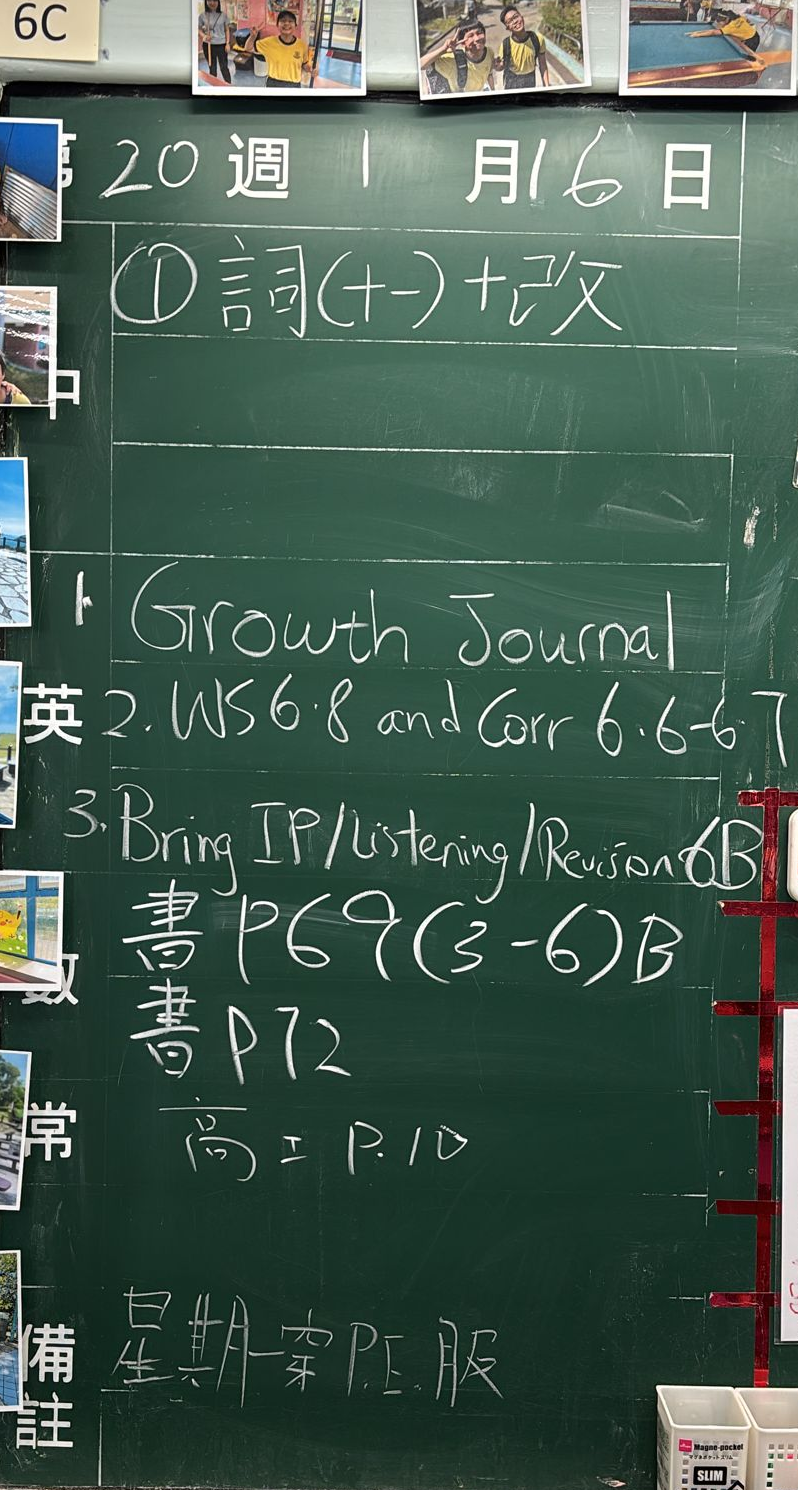 6C
第20週 1月16日
中
① 詞(十一)+改
1. Growth Journal
英
2. WS6.8 and Corr 6.6-6.7
3. Bring IP/Listening/Revision 6B
數
書 P69(3-6)B
書 P72
常
高工 P.10
備註
星期一穿P.E.服
Magne-pocket
マグネポケットスリム
SLIM